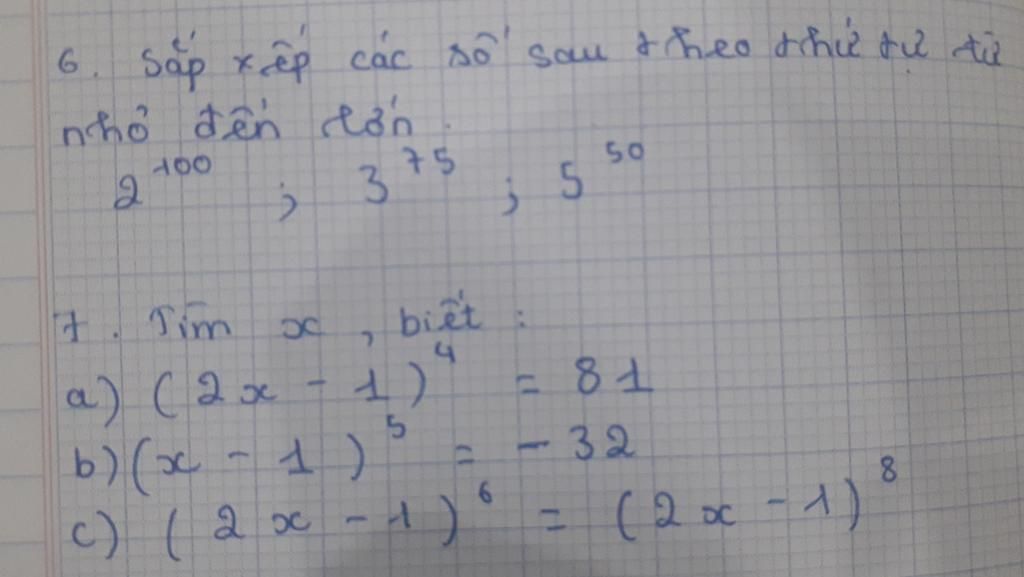 6. Sắp xếp các số sau theo thứ tự từ
nhỏ đến lớn.
2^100 ; 3^75 ; 5^50
7. Tìm x, biết :
a) (2x - 1)^4 = 81
b) (x - 1)^5 = - 32
c) (2x - 1)^6 = (2x - 1)^8